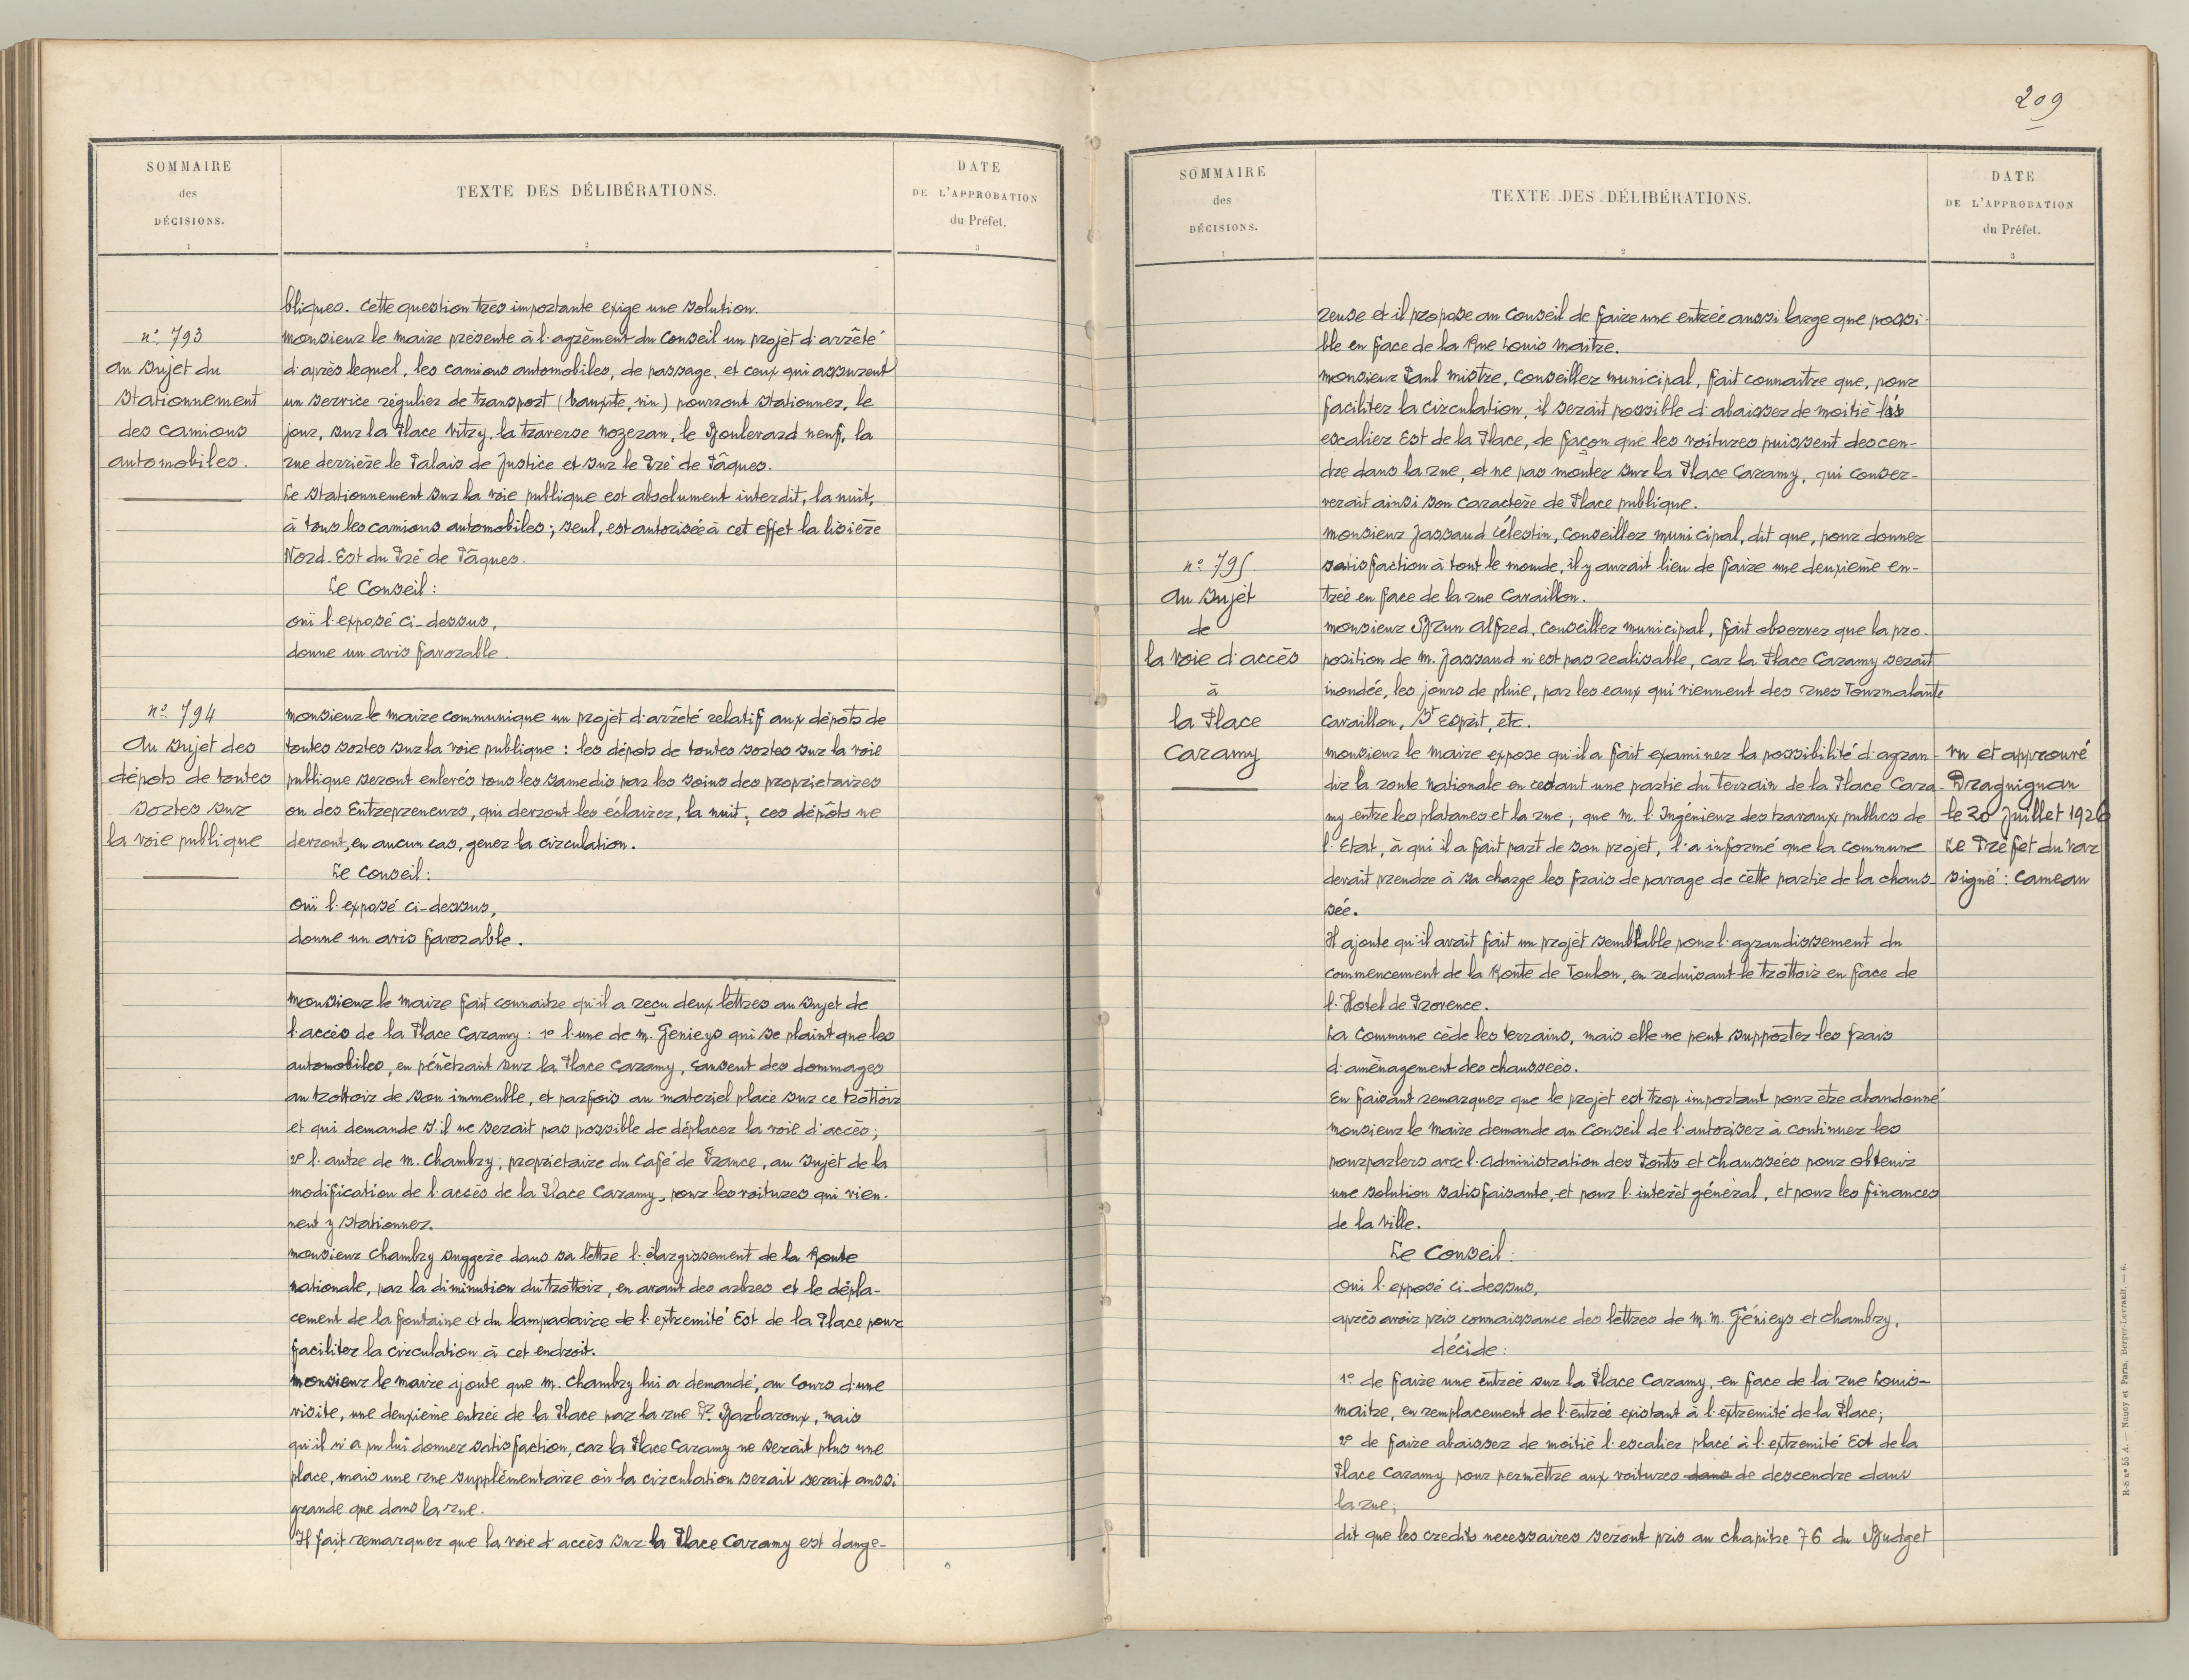 SOMMAIRE
des
DÉCISIONS.
1
TEXTE DES DÉLIBÉRATIONS.
2
DATE
DE L'APPROBATION
du Préfet.
3
bliques. Cette question très importante exige une solution.
n° 793
au sujet du
stationnement
des camions
automobiles.
monsieur le maire présente à l'agrèment du Conseil un projet d'arrêté
d'après lequel, les camions automobiles, de passage, et ceux qui assurent
un service régulier de transport (bauxite, vin) pourront stationner, le
jour, sur la Place Vitry, la traverse nozeran, le Boulevard neuf, la
rue derrière le Palais de Justice et sur le Pré de Pâques.
Le stationnement sur la voie publique est absolument interdit, la nuit,
à tous les camions automobiles; seul, est autorisée à cet effet la lisière
Nord-Est du Pré de Pâques.
Le Conseil:
ouï l'exposé ci-dessus,
donne un avis favorable.
n° 794
Au sujet des
dépots de toutes
sortes sur
la voie publique
monsieur le maire communique un projet d'arrêté relatif aux dépôts de
toutes sortes sur la voie publique: les dépots de toutes sortes sur la voie
publique seront enlevés tous les samedis par les soins des proprietaires
ou des Entrepreneurs, qui devront les éclairer, la nuit; ces dépôts ne
devront, en aucun cas, gener la circulation.
Le Conseil:
Ouï l'exposé ci-dessus,
donne un avis favorable.
monsieur le maire fait connaitre qu'il a reçu deux lettres au sujet de
l'accès de la Place Caramy: 1° l'une de M. Genieys qui se plaint que les
automobiles, en pénètrant sur la Place Caramy, causent des dommages
au trottoir de son immeuble, et parfois au materiel placé sur ce trottoir
et qui demande s'il ne serait pas possible de déplacer la voie d'accès;
2° l'autre de M. Chambry, proprietaire du Café de France, au sujet de la
modification de l'accès de la Place Caramy, pour les voitures qui vien-
nent y stationner.
monsieur Chambry suggere dans sa lettre l'élargissement de la Route
nationale, par la diminution du trottoir, en avant des arbres et le dépla-
cement de la fontaine et du lampadaire de l'extremité Est de la Place pour
faciliter la circulation à cet endroit.
monsieur le maire ajoute que M. Chambry lui a demandé, au cours d'une
visite, une deuxieme entrée de la Place par la rue Dr. Barbaroux, mais
qu'il n'a pu lui donner satisfaction, car la Place Caramy ne serait plus une
place, mais une rue supplémentaire où la circulation serait serait aussi
grande que dans la rue.
Il fait remarquer que la voie d'accès sur la Place Caramy est dange-
209
SOMMAIRE
des
DÉCISIONS.
1
TEXTE DES DÉLIBÉRATIONS.
2
DATE
DE L'APPROBATION
du Préfet.
3
reuse et il propose au Conseil de faire une entrée aussi large que possi-
ble en face de la Rue Louis Maitre.
monsieur Paul mistre, Conseiller municipal, fait connaître que, pour
faciliter la circulation, il serait possible d'abaisser de moitié les
escalier Est de la Place, de façon que les voitures puissent descen-
dre dans la rue, et ne pas monter sur la Place Caramy, qui conser-
verait ainsi son caractère de Place publique.
monsieur Jassaud Célestin, conseiller municipal, dit que, pour donner
satisfaction à tout le monde, il y aurait lieu de faire une deuxième en-
trée en face de la rue Cavaillon.
monsieur Brun Alfred, Conseiller municipal, fait observer que la pro-
position de M. Jassaud n'est pas realisable, car la Place Caramy serait
inondée, les jours de pluie, par les eaux qui viennent des rues Tourmalante
Cavaillon, St Esprit, etc.
n° 795
Au sujet
de
la voie d'accès
à
la Place
Caramy
monsieur le maire expose qu'il a fait examiner la possibilité d'agran-
dir la route nationale en cedant une partie du terrain de la Place Cara-
my entre les platanes et la rue; que M. l'Ingénieur des travaux publics de
l'Etat, à qui il a fait part de son projet, l'a informé que la commune
devait prendre à sa charge les frais de pavage de cette partie de la chaus-
sée.
Il ajoute qu'il avait fait un projet semblable pour l'agrandissement du
commencement de la Route de Toulon, en reduisant le trottoir en face de
l'Hotel de Provence.
La commune cède les terrains, mais elle ne peut supporter les frais
d'aménagement des chaussées.
En faisant remarquer que le projet est trop important pour etre abandonné
monsieur le maire demande au Conseil de l'autoriser à continuer les
pourparlers avec l'administration des Ponts et chaussées pour obtenir
une solution satisfaisante, et pour l'interêt général, et pour les finances
de la Ville.
Le Conseil:
Oui l'exposé ci-dessus,
après avoir pris connaissance des lettres de M.M. Génieys et Chambry,
décide:
1° de faire une entrée sur la Place Caramy, en face de la rue Louis-
Maitre, en remplacement de l'entrée existant à l'extrémité de la Place;
2° de faire abaisser de moitié l'escalier placé à l'extremité Est de la
Place Caramy pour permettre aux voitures dans de descendre dans
la rue;
dit que les credits necessaires seront pris au chapitre 76 du Budget
vu et approuvé
Draguignan
le 20 Juillet 1926
Le Préfet du Var
signé: Cameau
R-S n° 55 A. — Nancy et Paris. Berger-Levrault. — 6.